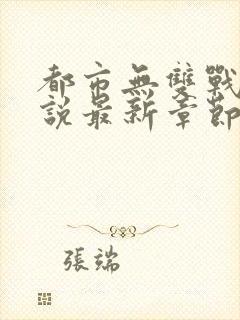 都市無雙戰
說最新章節
張端